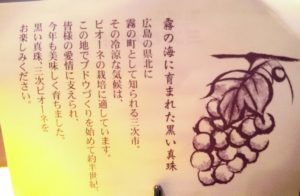 霧の海に育まれた黒い真珠
広島の県北に
霧の町として知られる三次市。
その冷涼な気候は、
ピオーネの栽培に適しています。
この地でブドウづくりを始めて約半世紀、
皆様の愛情に支えられ、
今年も美味しく育ちました。
黒い真珠、三次ピオーネを
お楽しみください。